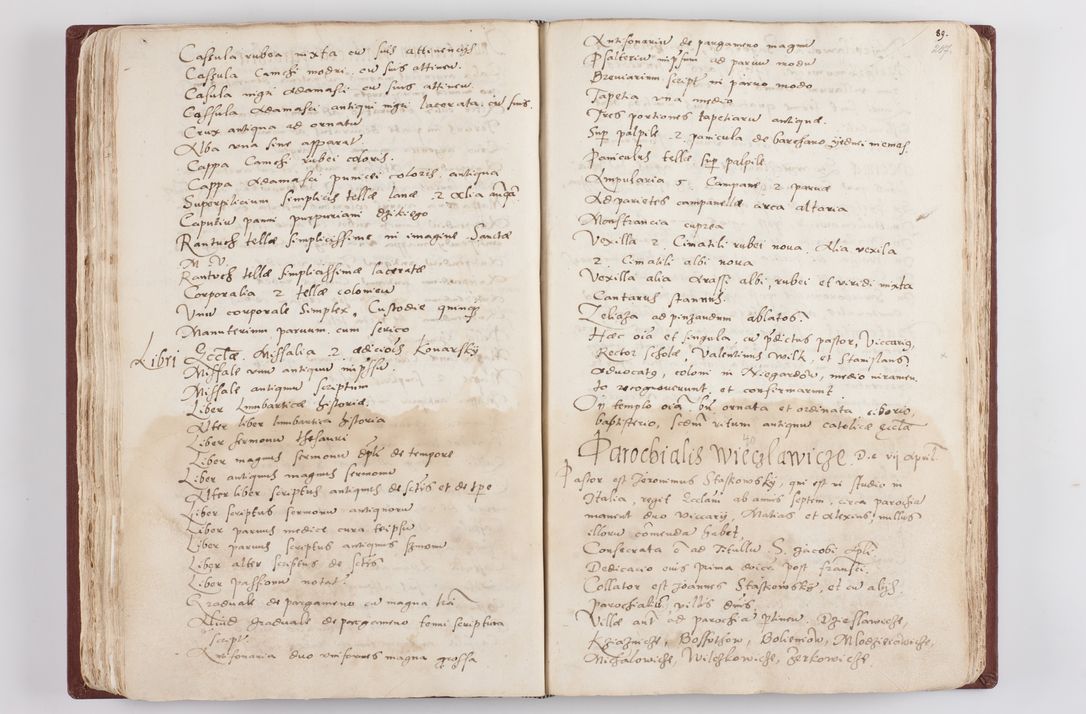 Casula rubea mixta cu suis attinencijs
Casula Camchi modri cu suis attinen.
Casula nigri Adamasci cu suis attinen
Cassula Adamasci antiqui nigri lacerata cu suis.
Crux antiqua ad ornatu
Alba una sine apparat
Cappa Camchi rubei coloris.
Cappa Adamasci punicei coloris, antiqua
Superpelicium simplicis tellæ lanæ 2 Alia
Caputiu panni purpuriani
Rantuch tellæ simplicissime in imagine Sanctæ
M V
Rantuch tellæ simplicissimæ laceratæ
Corporalia 2 tellæ colonien
Unu corporale simplex, Custodie quinq
Manuterium parvum cum serico
Libri Eccliæ. Missalia 2 Konarsky
Missale unu antiquu impssu.
Missale antiquu scriptum
Liber Lombarticæ historiæ.
Alter liber lombartica historia
Liber sermonu thesauri
Liber magnus sermonu de tempore
Liber antiquus magnus sermonu
Alter liber scriptus antiquus de sctis et de tpe
Liber scriptus sermonu antiquoru
Liber parvus medice cura teipsu
Liber parvus scriptus antiquus
Liber alter scriptus de sctis
Liber passionu
Graduale de pargameno cu magna
Aliud graduale de pragameno tenui scriptura
script.
Antifonaria duo magna grossa
89.
207
Antifonariu de pargameno magnu
Psalteriu impssum ad parvu modu
Breviarium script in parvo modo
Tapetia una medio
Tres portiones tapetiaru antiquæ.
Sup palpite 2 panicula de
Paniculus tellæ sup palpite
Ampularia 5 Campane 2 parvæ
Ad parietes campanellæ circa altaria
Monstrancia cuprea
Vexilla 2 Cimatili rubei nova Alia vexila
2. Cimatili albi nova
Vexilla alia crassi albi, rubei et viridi mixta
Cantarus stanneus.
Zeliaza ad pinzandum ablatos.
Hæc oia et singula, cu pdictus pastor, Viccarius,
Rector scholæ, Valentinus Wilk, et Stanislaus
Advocatus, coloni in Niegardow, medio
Jo recognoverunt, et confirmarunt
templo oia bn ornata et ordinata ciborio,
baptisterio, antiquu catolicæ Eccliæ
Parochialis Wieczlawicze. Die vij April.
Pastor est Jeronimus Staskowsky, qui est in studio in
Italia, regit Eccliam ab annis septem, circa parochia
manent duo viccarij, Matias et Alexius, nullus
illoru comenda habet.
Consecrata e ad Titullu S. Jacobi Apli
Dedicacio eius prima post francisci
Collator est Joannes Staskowsky, et cu alijs
parochialib, villis
Villæ ant ad parochia ptinen. Dzieslawiche,
Boliemow, Mlodziejowiche,
Michalowiche, Wilchkowiche, Zerkowiche